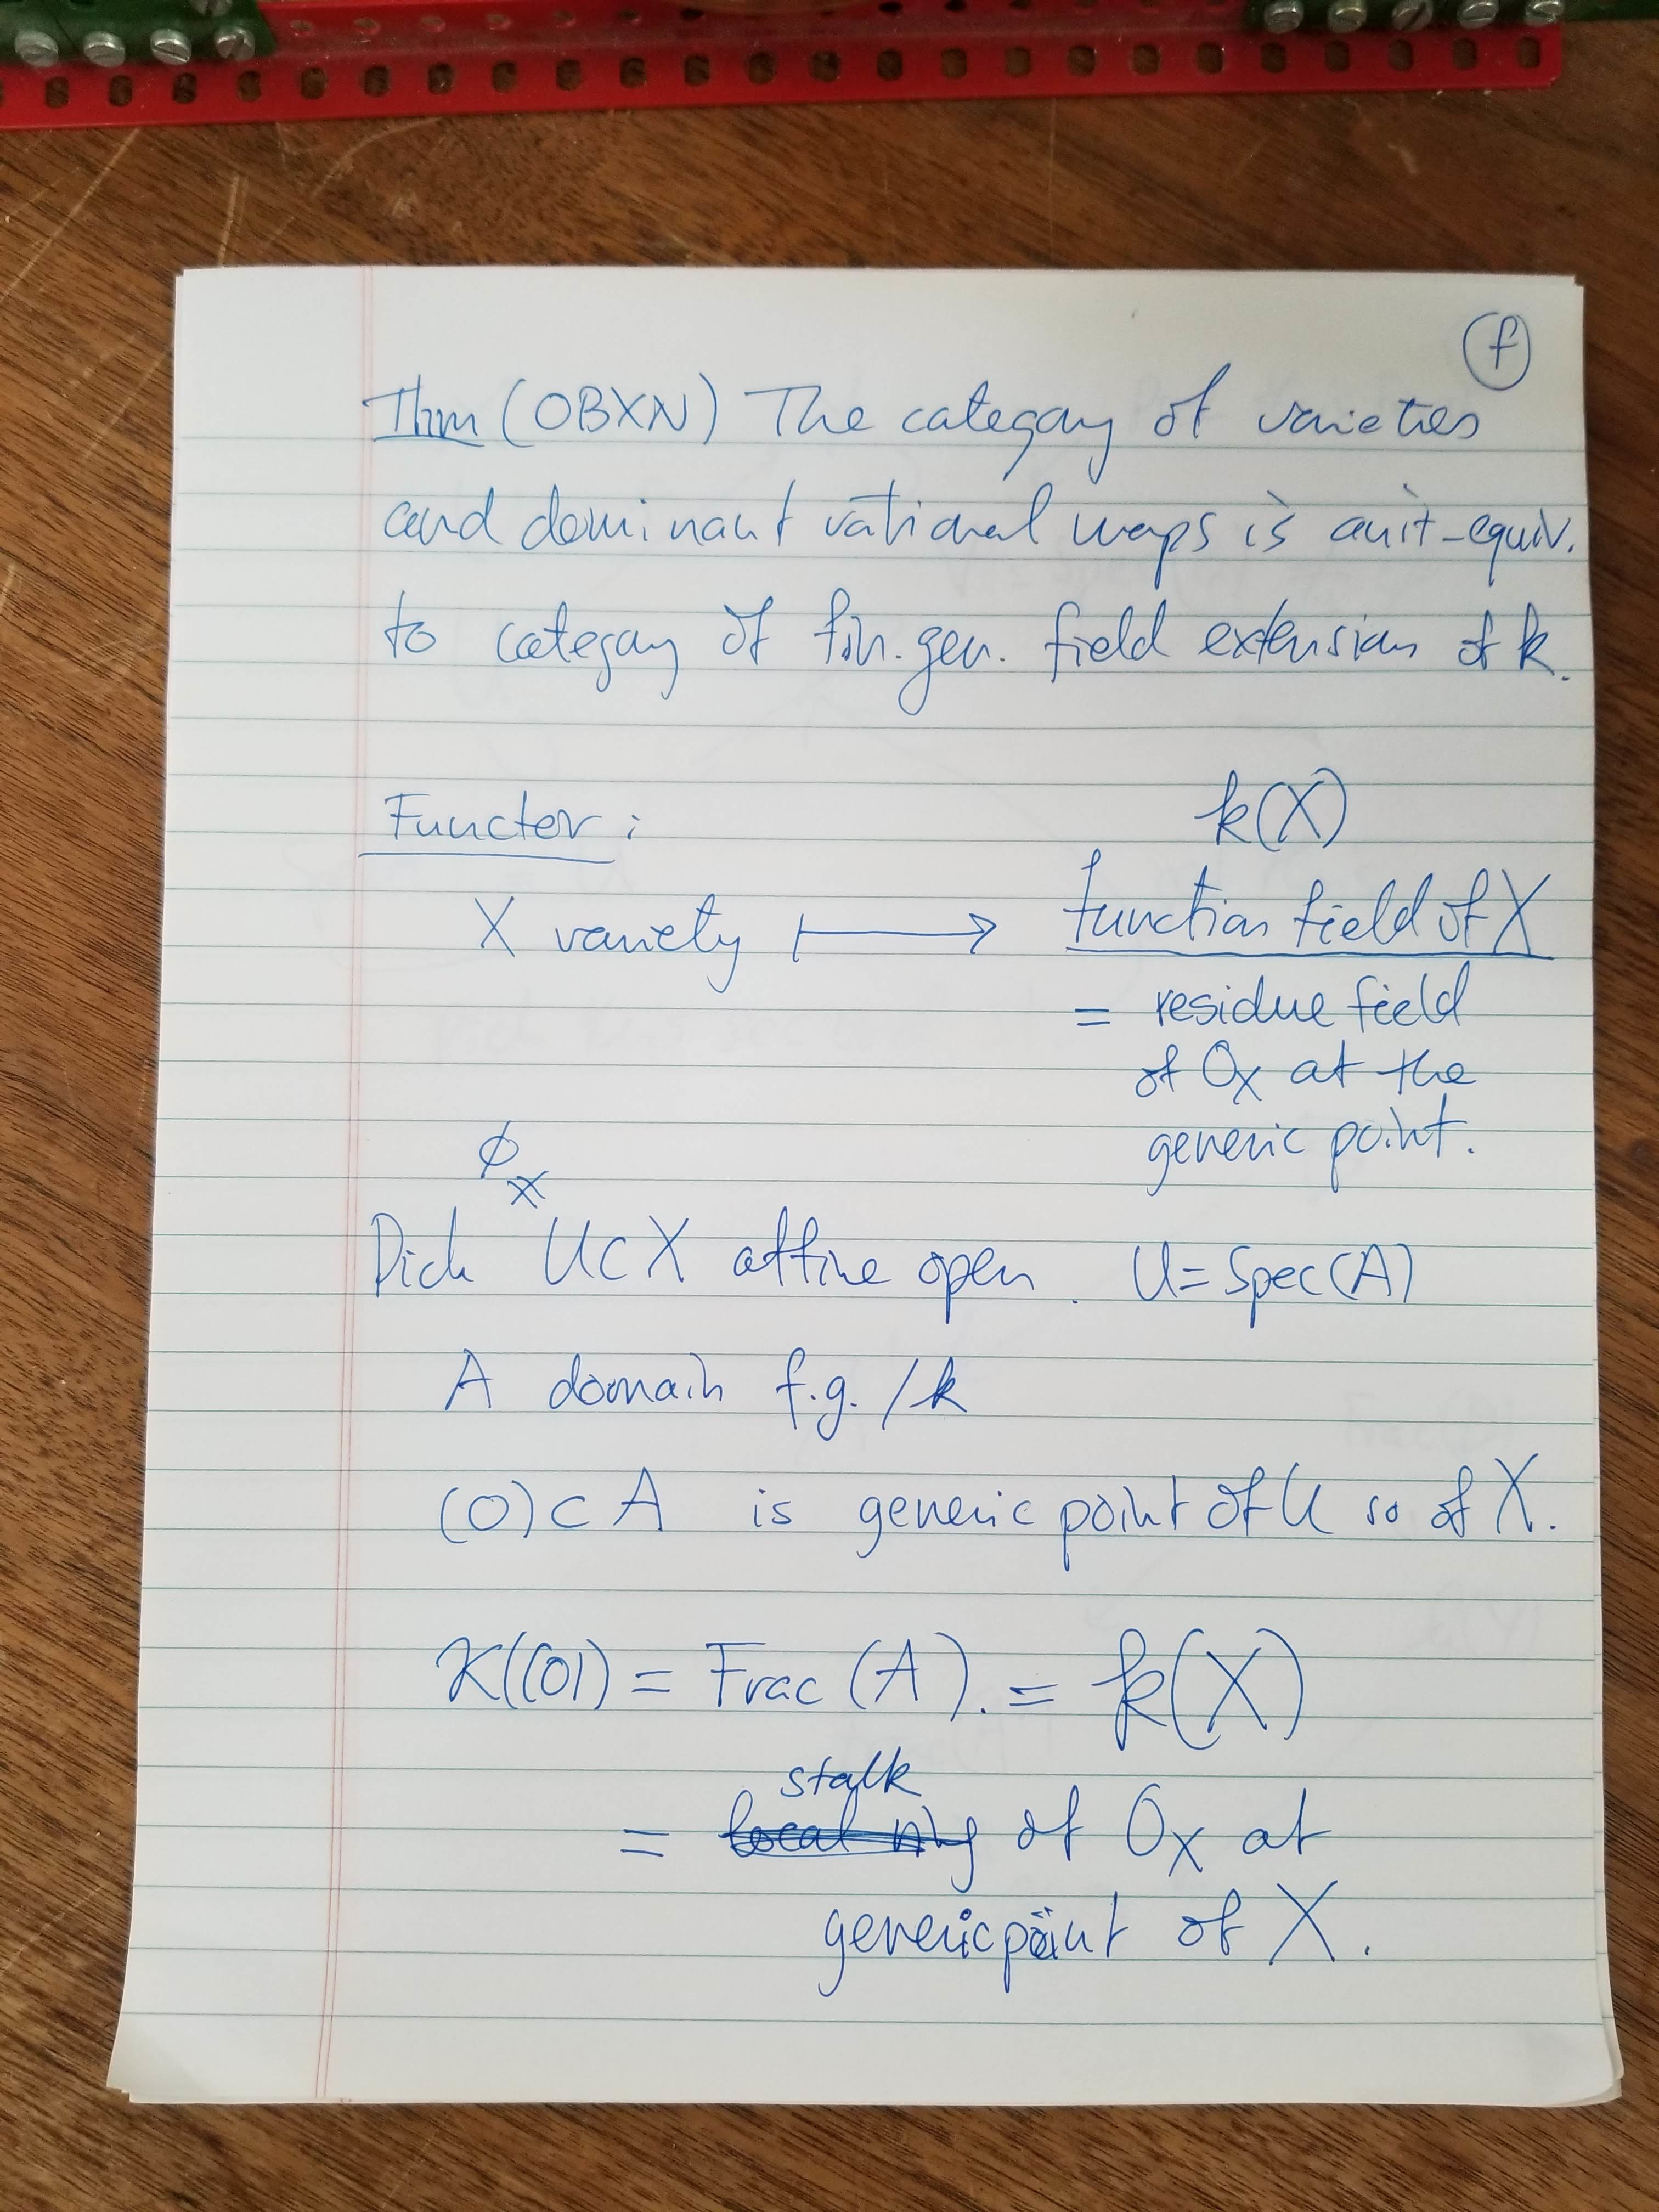 (f)
Thm (0BXN) The category of varieties
and dominant rational maps is anit-equiv.
to category of fin. gen. field extensions of k.
Functor :
k(X)
X variety ⟼ function field of X
= residue field
of O_X at the
generic point.
∅
≠
Pick U ⊂ X affine open. U = Spec(A)
A domain f.g. / k
(0) ⊂ A is generic point of U so of X.
κ((0)) = Frac (A). = k(X)
stalk
= ~~local ring~~ of O_X at
generic point of X.